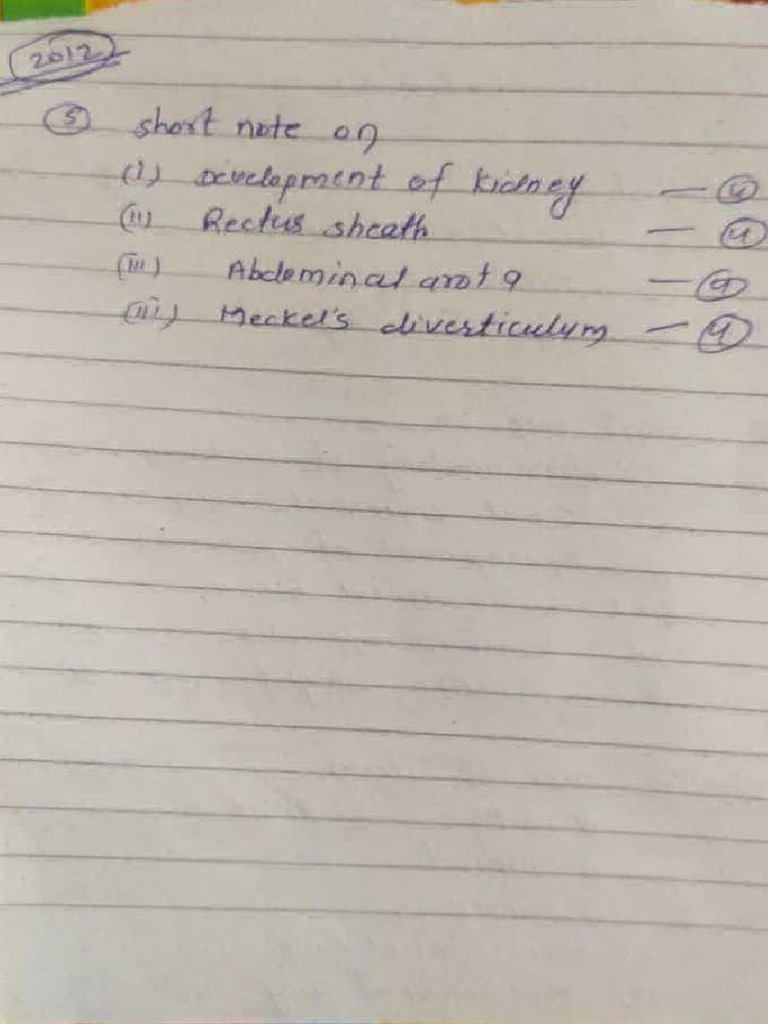 2012
5 short note on
(i) Development of kidney — 4
(ii) Rectus sheath — 4
(iii) Abdominal arota — 4
(iii) Meckel's diverticulum — 4